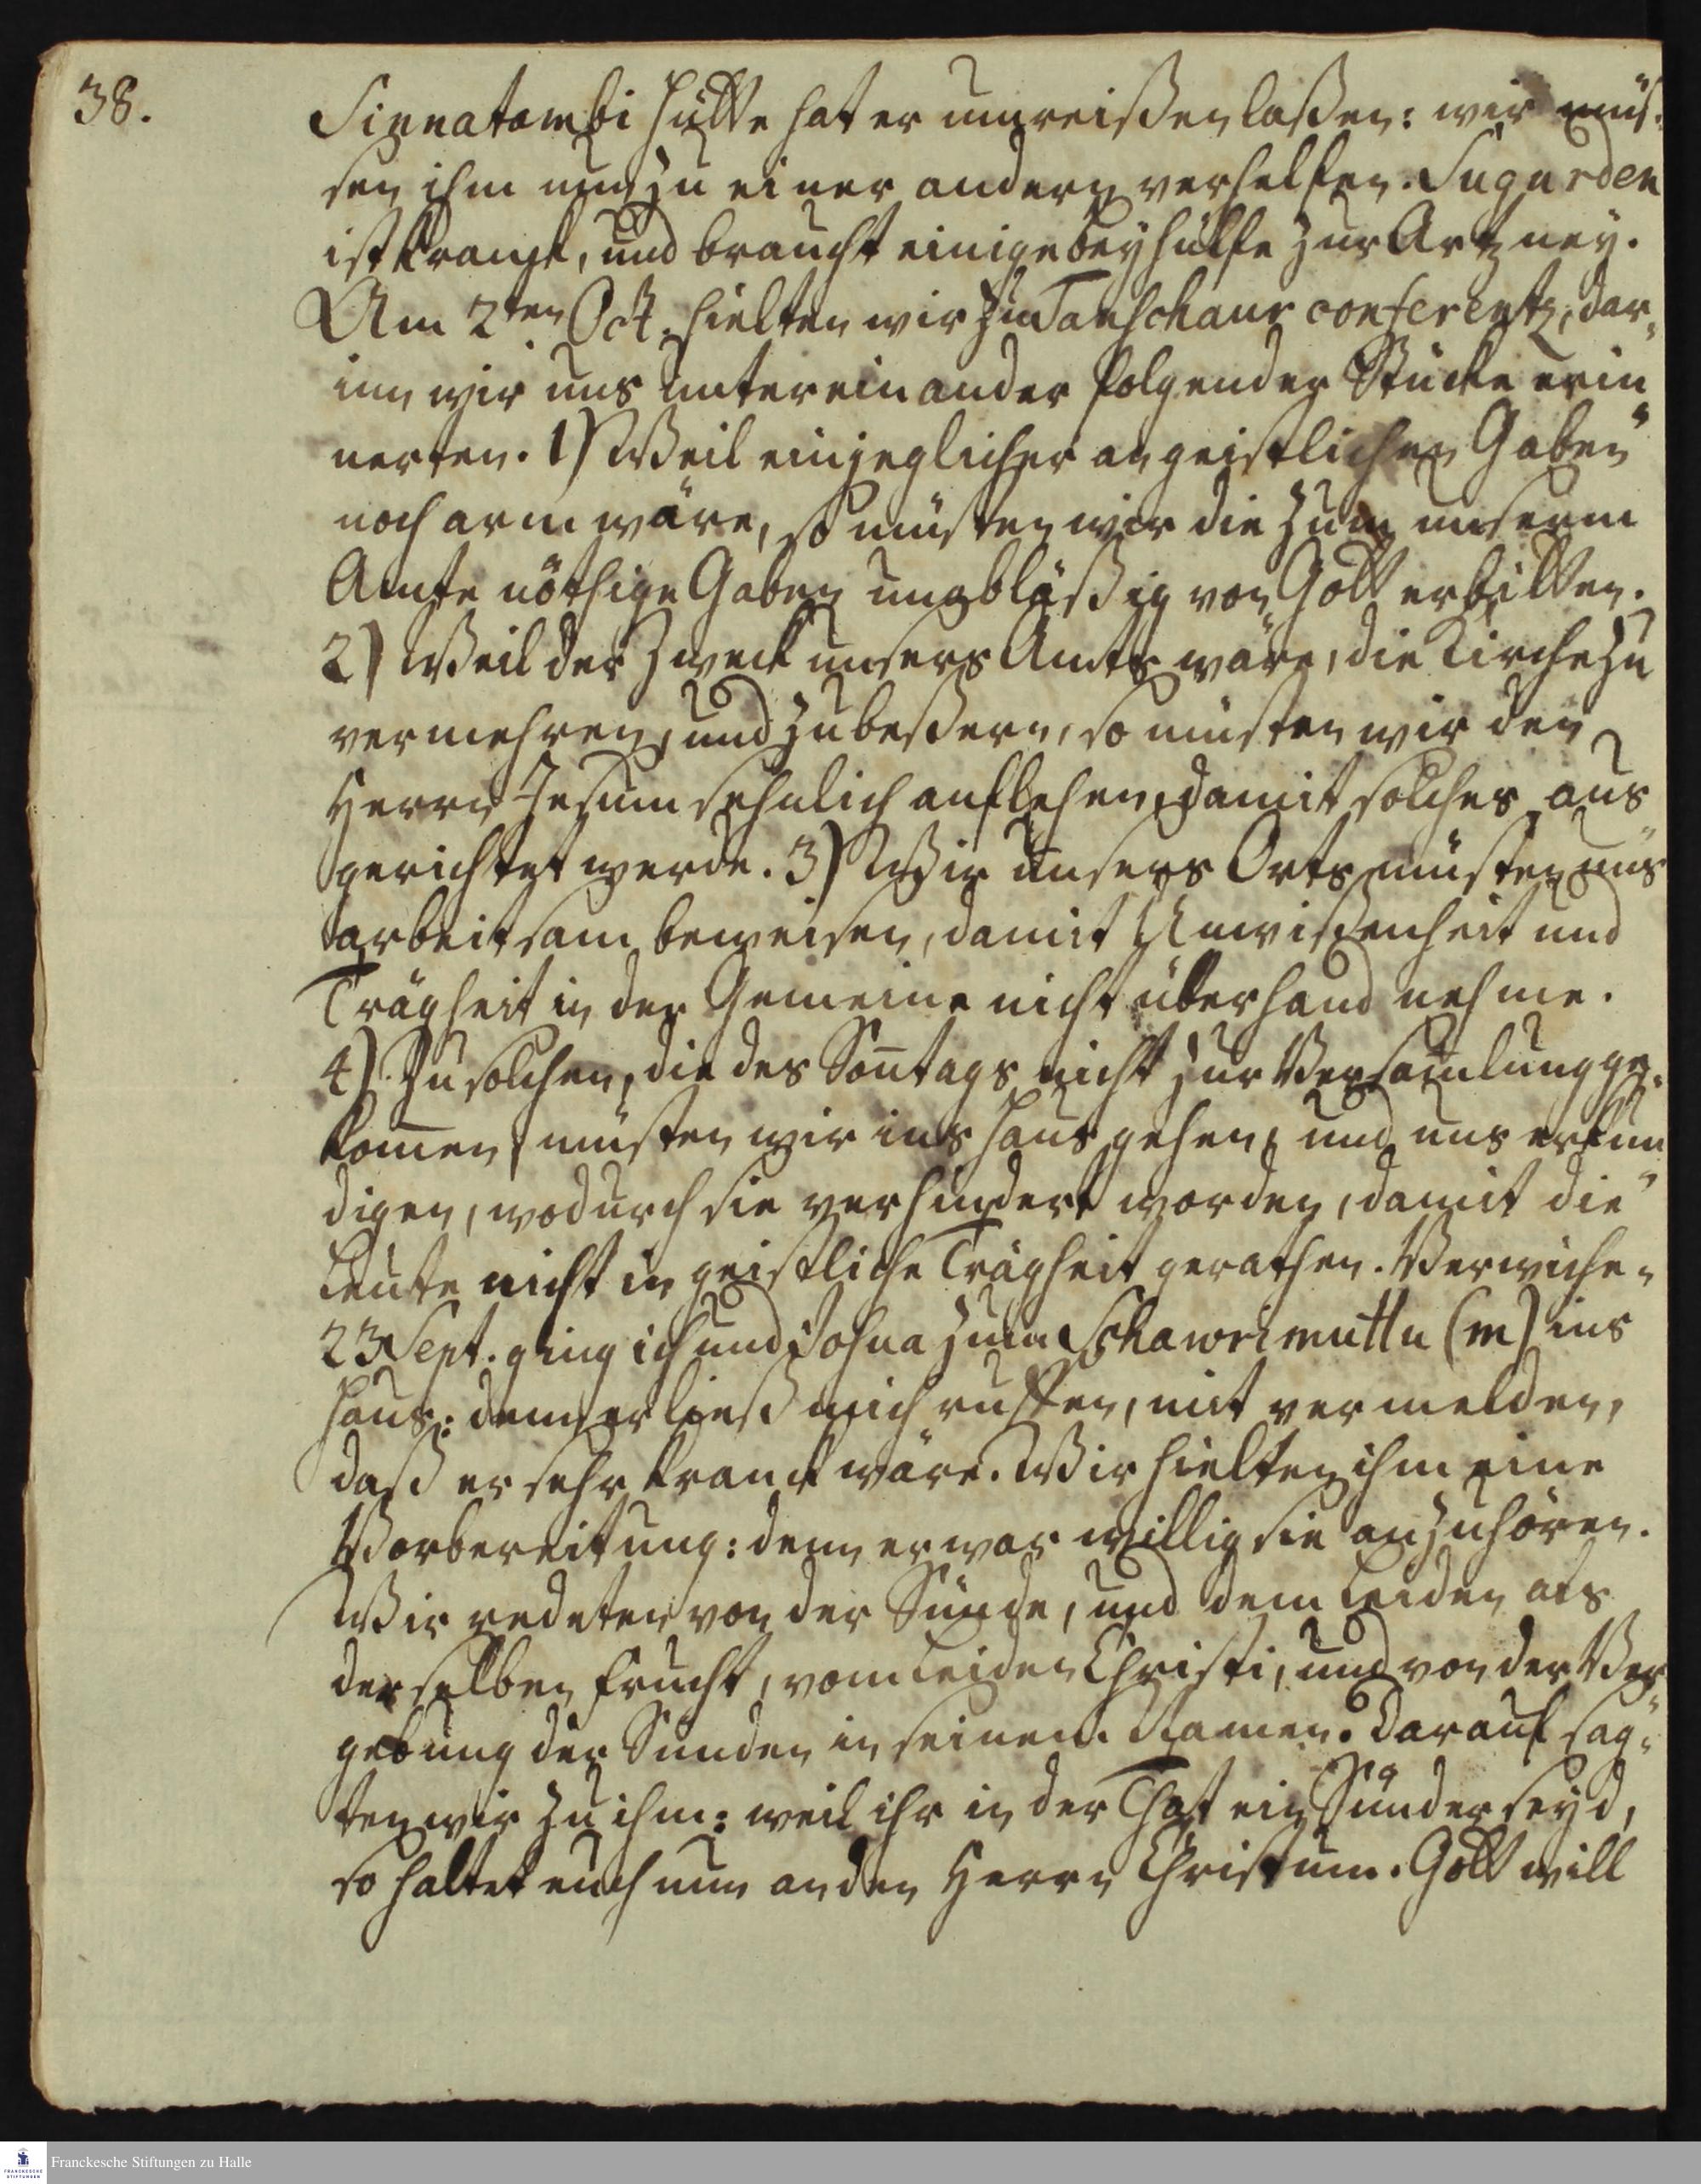 38.
Sinnatambi hütte hat er umreißen laßen: wir müs-
sen ihm nun zu einer andern verhelfen. Sugurden
ist kranck, und braucht einige beyhülfe zur Artzney.
Am 2ten Oct. hielten wir zu Tanschaur conferentz, dar-
inn wir uns untereinander folgender Stücke erin-
nerten. 1) Weil ein jeglicher an geistlichen Gaben
noch arm wäre, so müsten wir die zum unserm
Amte nöthige Gaben unabläßig von Gott erbitten.
2) Weil der Zweck unsers Amts wäre, die Kirche zu
vermehren, und zu beßern, so müsten wir den
Herrn Jesum sehnlich anflehen, damit solches aus-
gerichtet werde. 3) Wir unsers Orts müsten uns
arbeitsam beweisen, damit Unwißenheit und
Trägheit in der Gemeine nicht überhand nehme.
4) Zu solchen, die des Son̄tags nicht zur Versam̄lung ge-
kom̄en, müsten wir ins Haus gehen, und uns erkun-
digen, wodurch sie verhindert worden, damit die
Leute nicht in geistliche Trägheit gerathen. Verwiche-
23 Sept. ging ich und Josua zum Schawrimuttu (m) ins
Haus: denn er ließ mich ruffen, mit vermelden,
daß er sehr kranck wäre. Wir hielten ihm eine
Vorbereitung: denn er war willig sie anzuhören.
Wir redeten von der Sünde, und dem Leiden als
derselben frucht, vom Leiden Christi, und von der Ver-
gebung der Sünden in seinem Namen. Darauf sag-
ten wir zu ihm: weil ihr in der That ein Sünder seyd,
so haltet euch nun an den Herrn Christum. Gott will
FRANCKESCHE STIFTUNGEN
Franckesche Stiftungen zu Halle